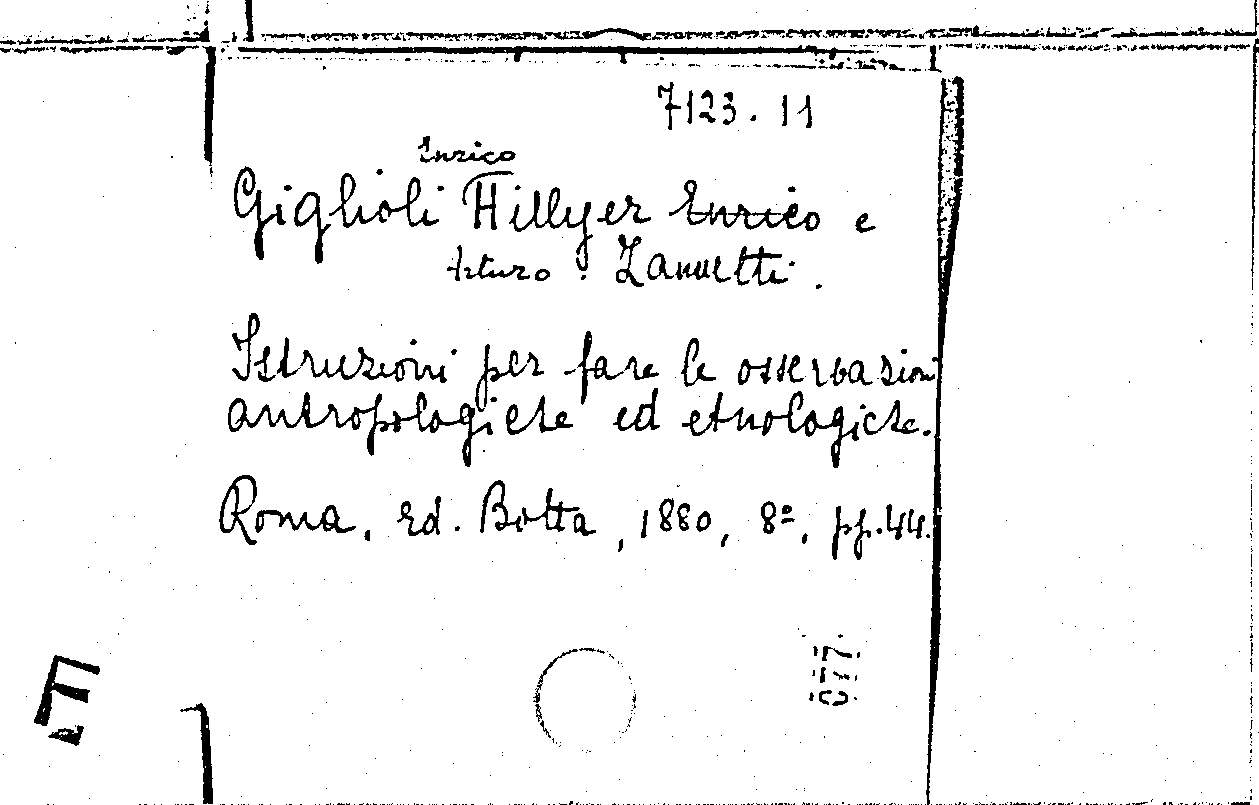 7123.11
Enrico
Giglioli Hillyer Enrico e
Arturo Zannetti.
Istruzioni per fare le osservazioni
antropologiche ed etnologiche.
Roma, Ed. Botta, 1880, 8º, pp. 44.
077
F